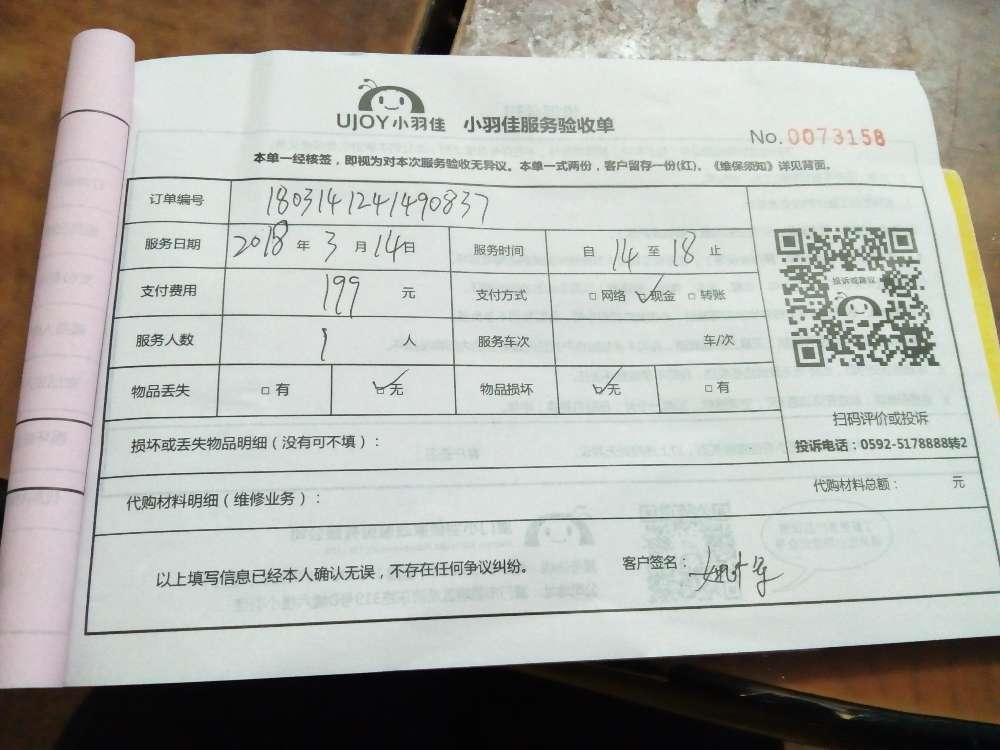 UJOY小羽佳 小羽佳服务验收单
No.0073158
本单一经核签，即视为对本次服务验收无异议。本单一式两份，客户留存一份(红)。《维保须知》详见背面。
订单编号 180314124149083７
服务日期 2018 年 3 月 14 日 服务时间 自 14 至 18 止
支付费用 199 元 支付方式 □网络 ☑现金 □转账
服务人数 1 人 服务车次 车/次
物品丢失 □有 ☑无 物品损坏 ☑无 □有
投诉或建议
扫码评价或投诉
投诉电话：0592-5178888转2
损坏或丢失物品明细（没有可不填）：
代购材料明细（维修业务）： 代购材料总额： 元
以上填写信息已经本人确认无误，不存在任何争议纠纷。 客户签名：